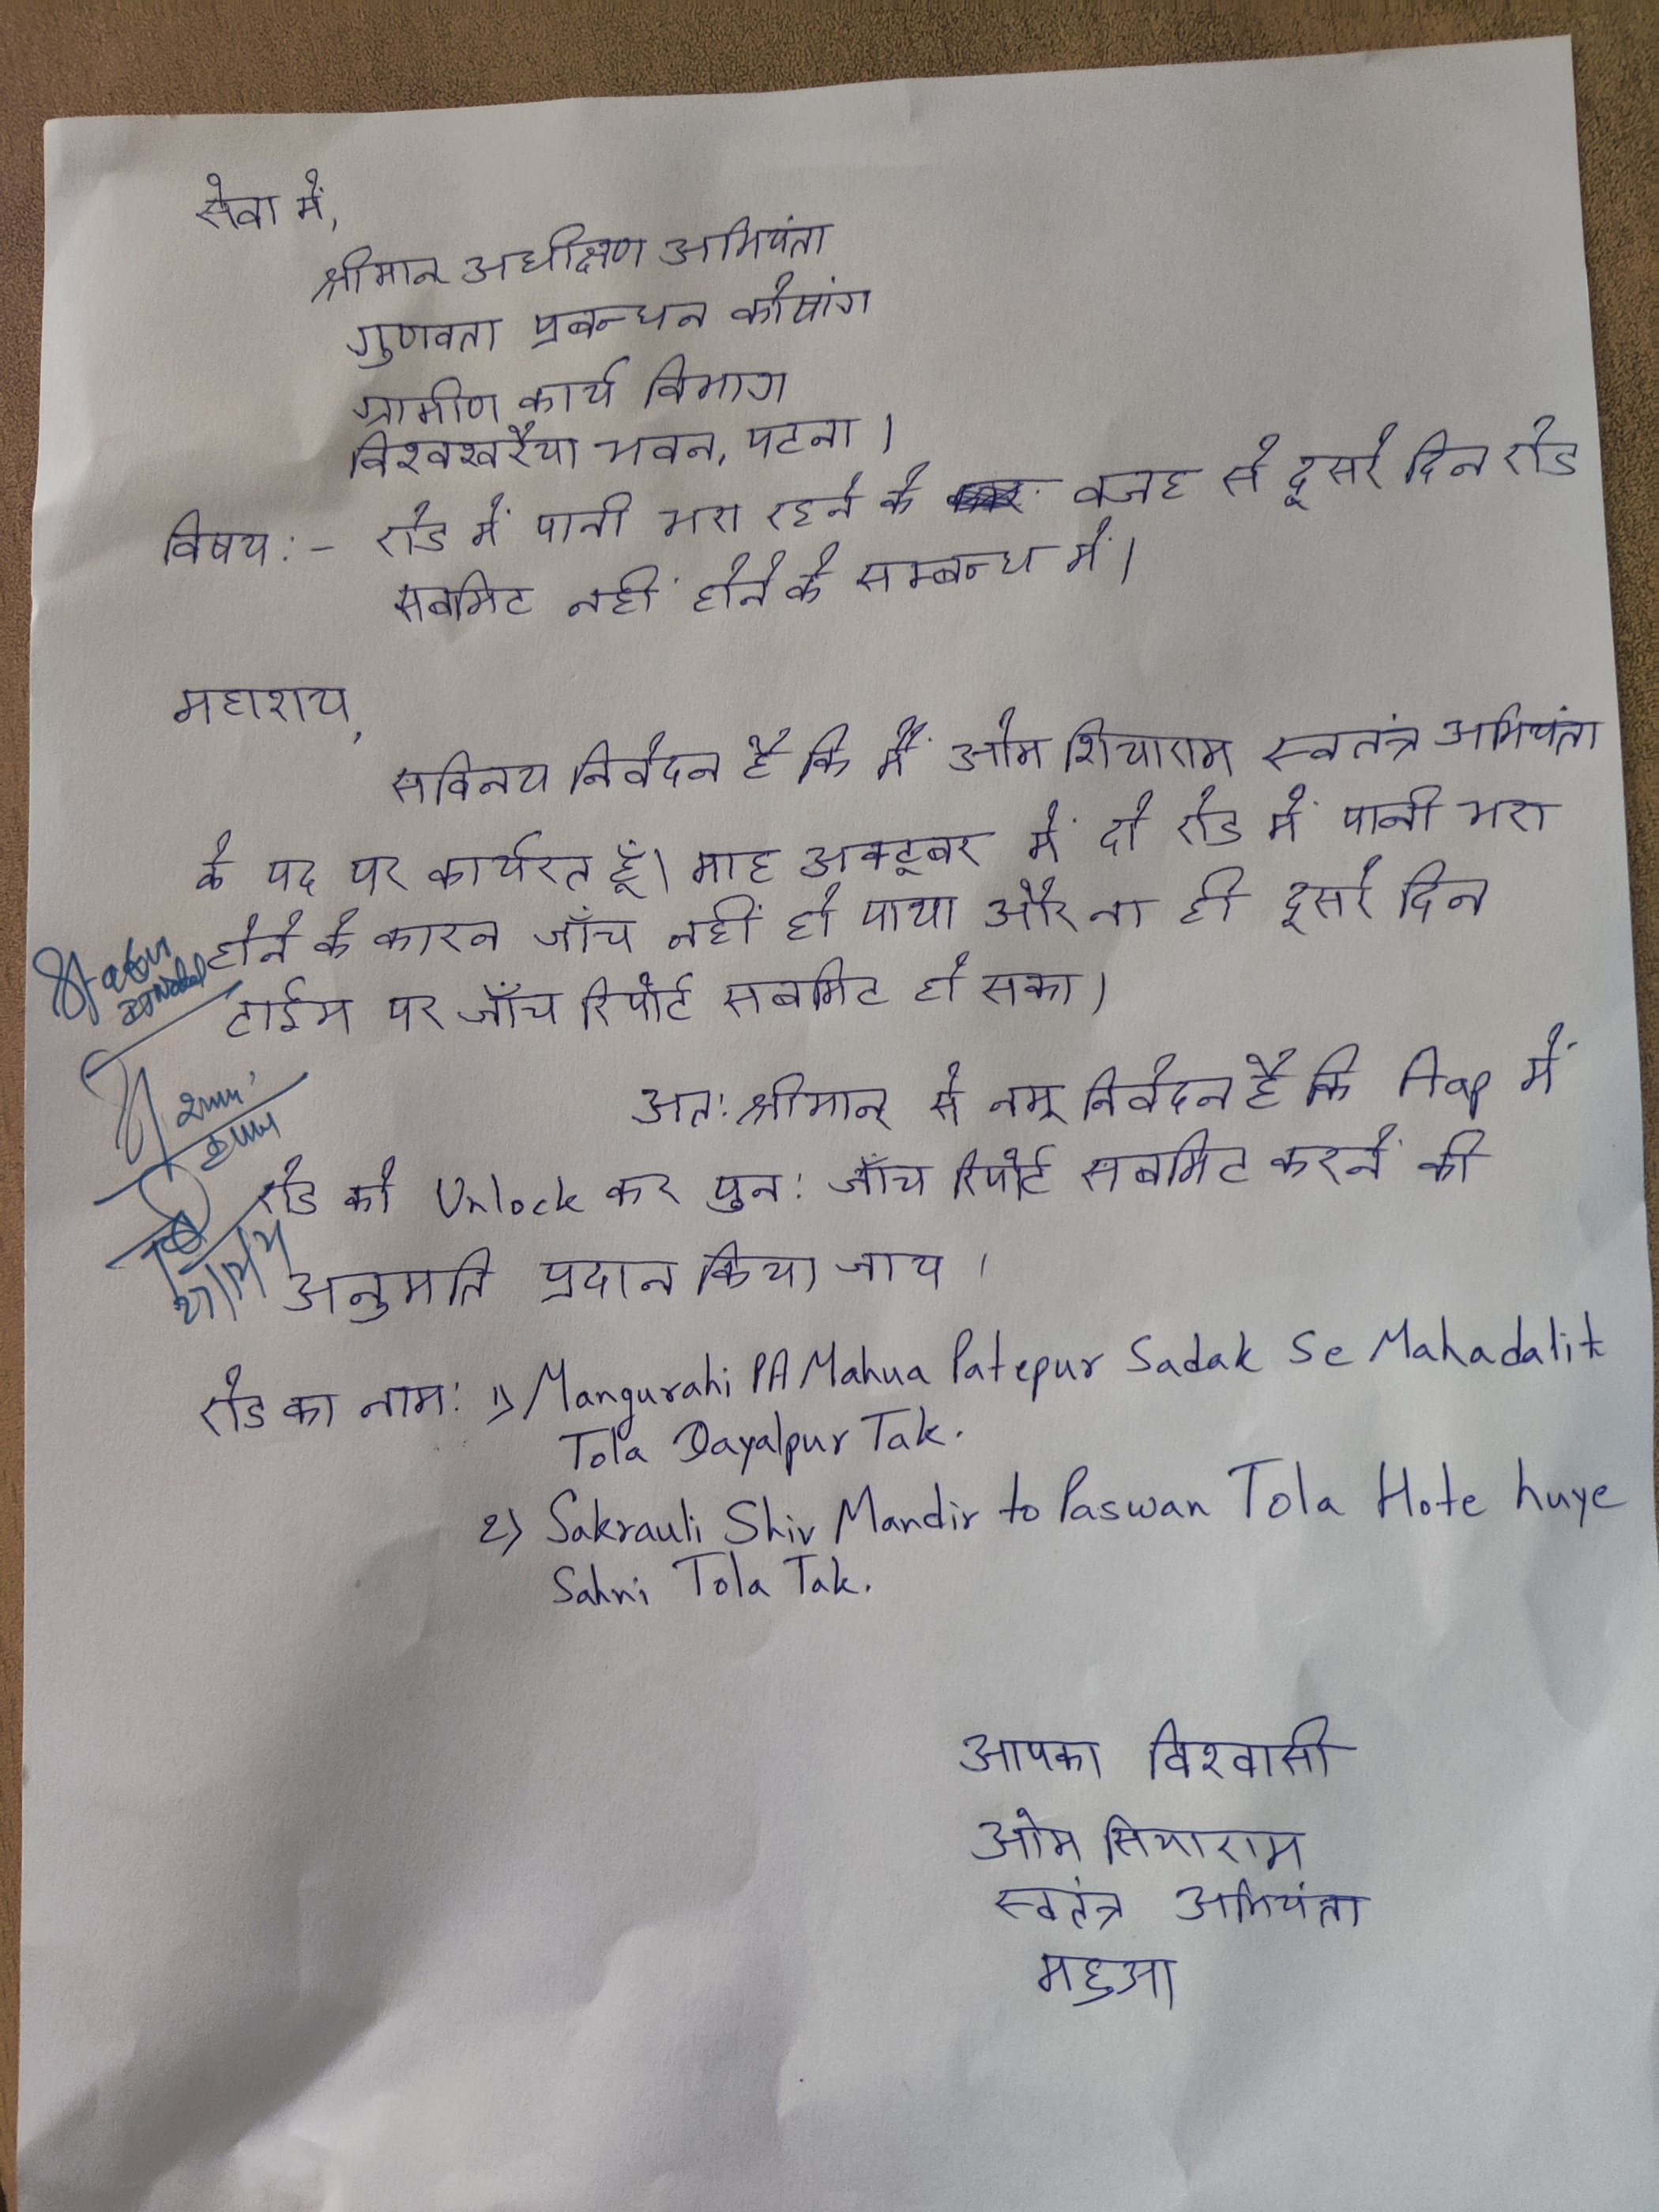 सेवा में,
श्रीमान अधीक्षण अभियंता
गुणवता प्रबन्धन कोषांग
ग्रामीण कार्य विभाग
विश्वश्वरैया भवन, पटना।
विषय:- रोड में पानी भरा रहने के वजह से दूसरे दिन रोड
सबमिट नहीं होने के सम्बन्ध में।
महाशय,
सविनय निवेदन है कि मैं ओम शियाराम स्वतंत्र अभियंता
के पद पर कार्यरत हूँ। माह अक्टूबर में दो रोड में पानी भरा
होने के कारन जाँच नहीं हो पाया और ना ही दूसरे दिन
टाईम पर जाँच रिपोर्ट सबमिट हो सका।
अत: श्रीमान से नम्र निवेदन है कि Aap में
रोड को Unlock कर पुन: जाँच रिपोर्ट सबमिट करने की
अनुमति प्रदान किया जाय।
रोड का नाम: 1) Mangurahi PA Mahua Patepur Sadak Se Mahadalit
Tola Dayalpur Tak.
2) Sakrauli Shiv Mandir to Paswan Tola Hote huye
Sahni Tola Tak.
आपका विश्वासी
ओम सियाराम
स्वतंत्र अभियंता
महुआ